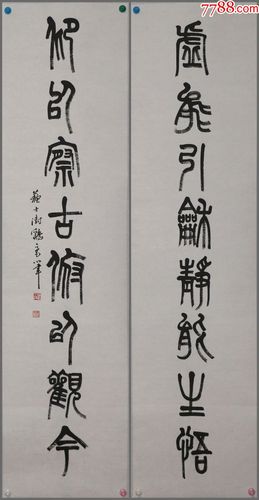 7788.com
虛能引龢靜能生悟
仰以察古俯以觀今
蘇士澍